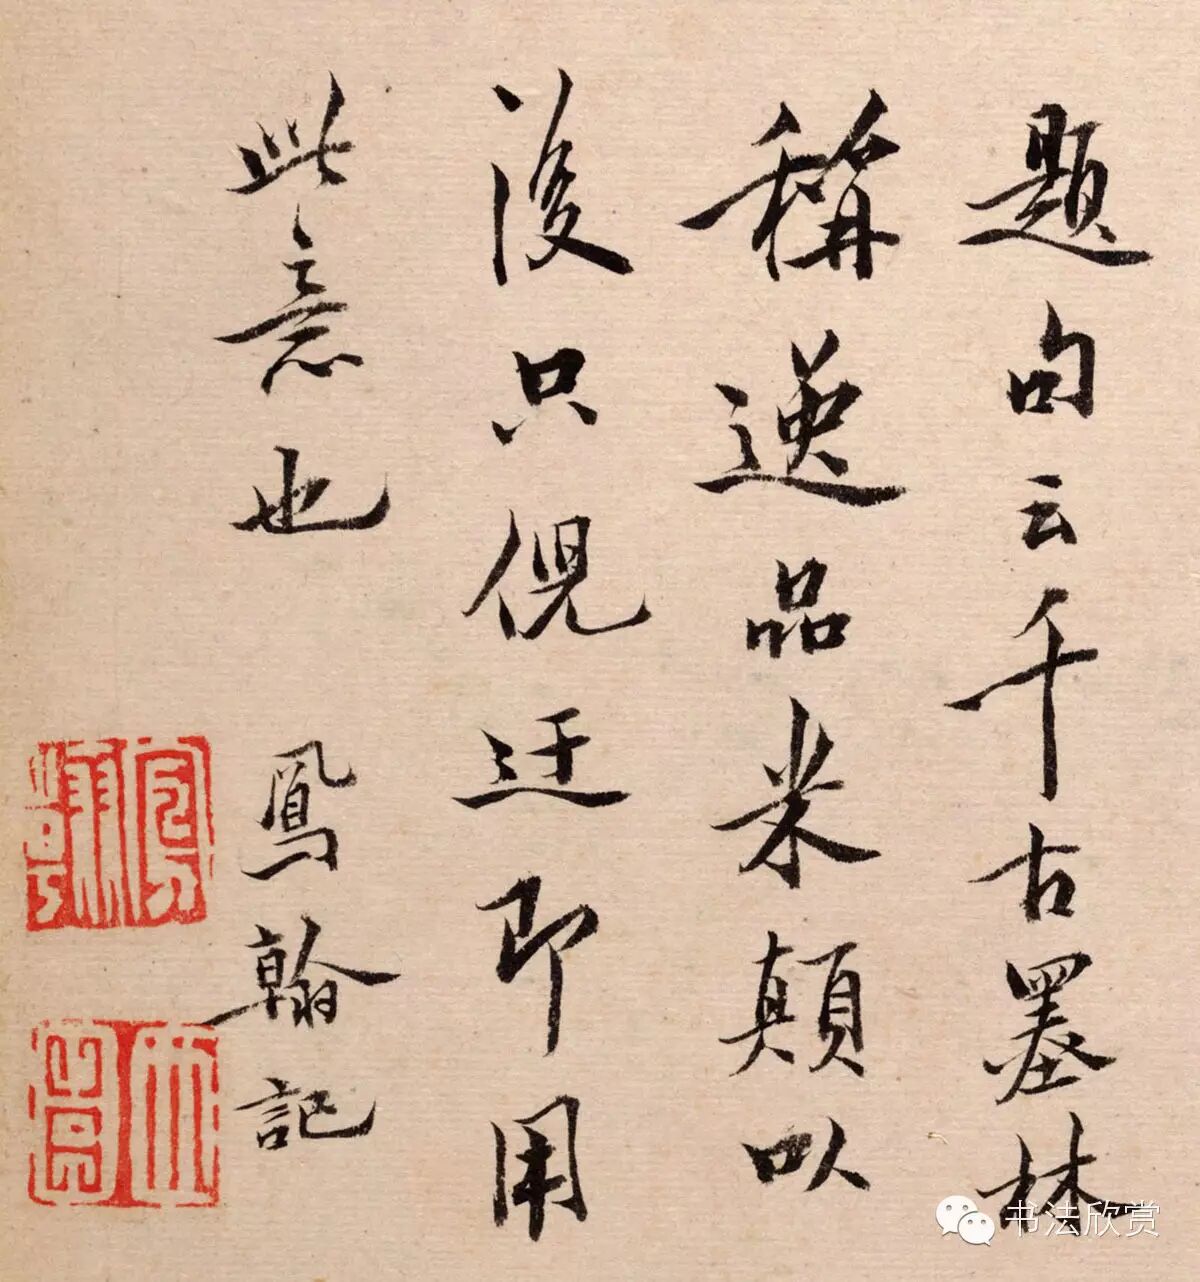 題句云千古墨林
稱逸品米顛以
後只倪迂即用
此意也
鳳翰記
鳳翰
書法欣赏